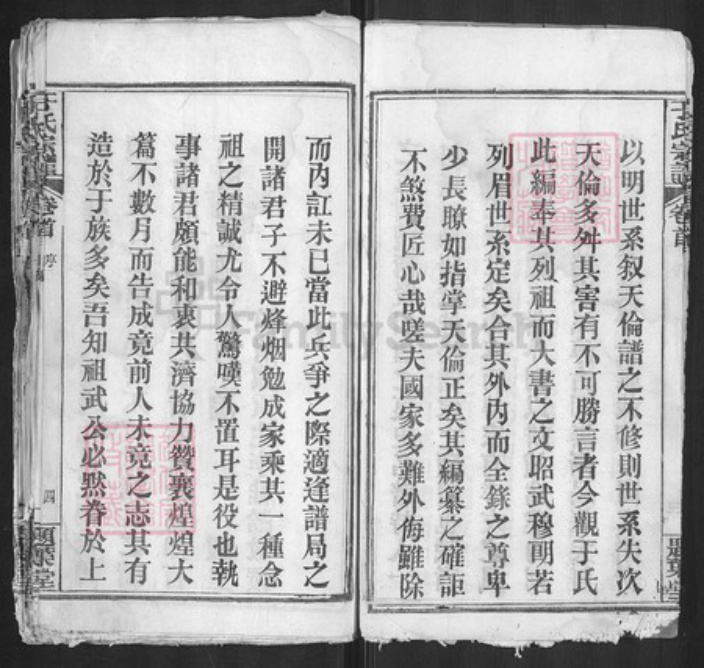 以明世系叙天倫譜之不修則世系失次
天倫多舛其害有不可勝言者今觀于氏
此編奉其列祖而大書之文昭武穆朙若
列眉世系定矣合其外內而全錄之尊卑
少長瞭如指掌天倫正矣其編纂之確詎
不煞費匠心哉嗟夫國家多難外侮雖除
而內訌未已當此兵爭之際適逢譜局之
開諸君子不避烽烟勉成家乘其一種念
祖之精誠尤令人驚嘆不置耳是役也執
事諸君頗能和衷共濟協力贊襄煌煌大
篇不數月而告成竟前人未竟之志其有
造於于族多矣吾知祖武公必黙眷於上
于氏宗譜
卷首
序
四
FamilySearch